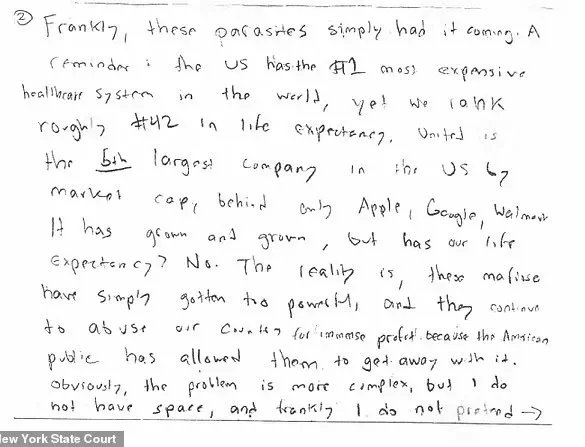 ② Frankly, these parasites simply had it coming. A
reminder : the US has the #1 most expensive
healthcare system in the world, yet we rank
roughly #42 in life expectancy. United is
the 5th largest company in the US by
market cap, behind only Apple, Google, Walmart
It has grown and grown, but has our life
expectancy? No. The reality is, these mafiose
have simply gotten too powerful, and they continue
to abuse our country for immense profit because the American
public has allowed them to get away with it.
Obviously, the problem is more complex, but I do
not have space, and frankly I do not pretend →
ew York State Court